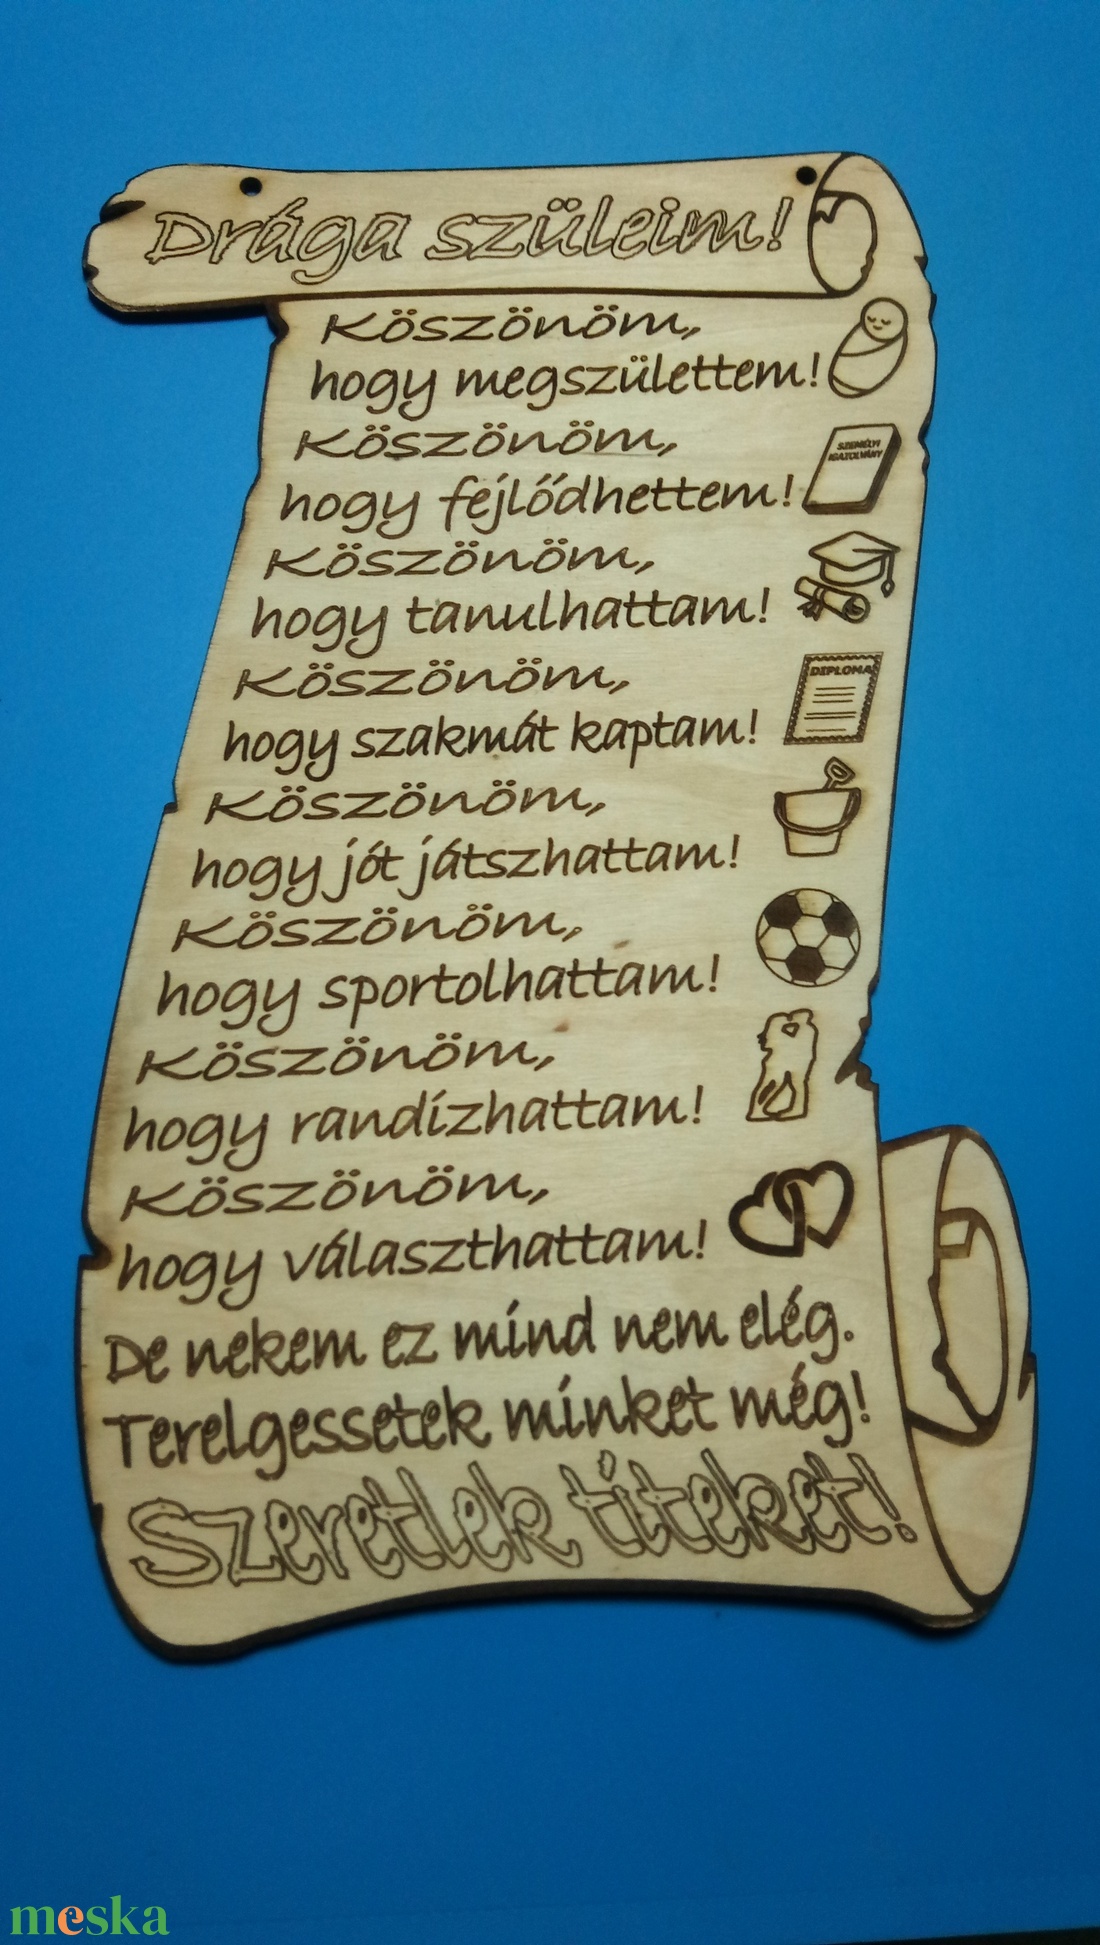 Drága szüleim!
Köszönöm,
hogy megszülettem!
Köszönöm,
SZEMÉLYI
IGAZOLVÁNY
hogy fejlődhettem!
Köszönöm,
hogy tanulhattam!
Köszönöm,
DIPLOMA
hogy szakmát kaptam!
Köszönöm,
hogy jót játszhattam!
Köszönöm,
hogy sportolhattam!
Köszönöm,
hogy randízhattam!
Köszönöm,
hogy választhattam!
De nekem ez mind nem elég.
Terelgessetek minket még!
Szeretlek titeket!
meska